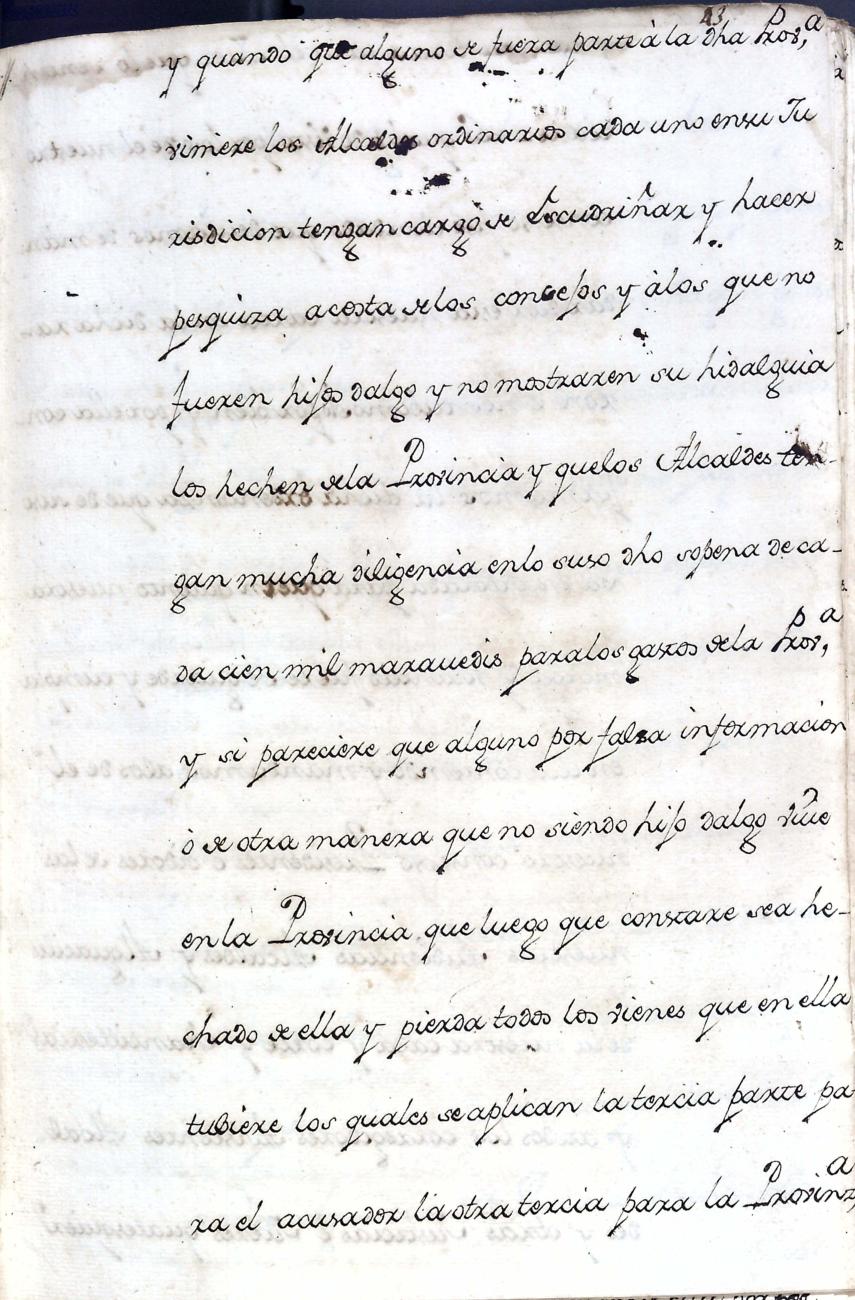 43
y quando que alguno de fuera parte à la dha Prov,ª
viniere los Alcaldes ordinarios cada uno ensu Ju
risdicion tengan cargo de Escudriñar y hacer
pesquiza acosta delos concejos y àlos que no
fueren hijos dalgo y no mostraren su hidalguia
los hechen dela Provincia y quelos Alcaldes ten-
gan mucha diligencia enlo suso dho sopena de ca-
da cien mil maravedis paralos gastos dela Prov,ª
y si pareciere que alguno por falsa informacion
ò de otra manera que no siendo hijo dalgo vive
enla Provincia que luego que constare sea he-
chado de ella y pierda todos los vienes que en ella
tubiere los quales se aplican la tercia parte pa
ra el acusador la otra tercia para la Provinzª